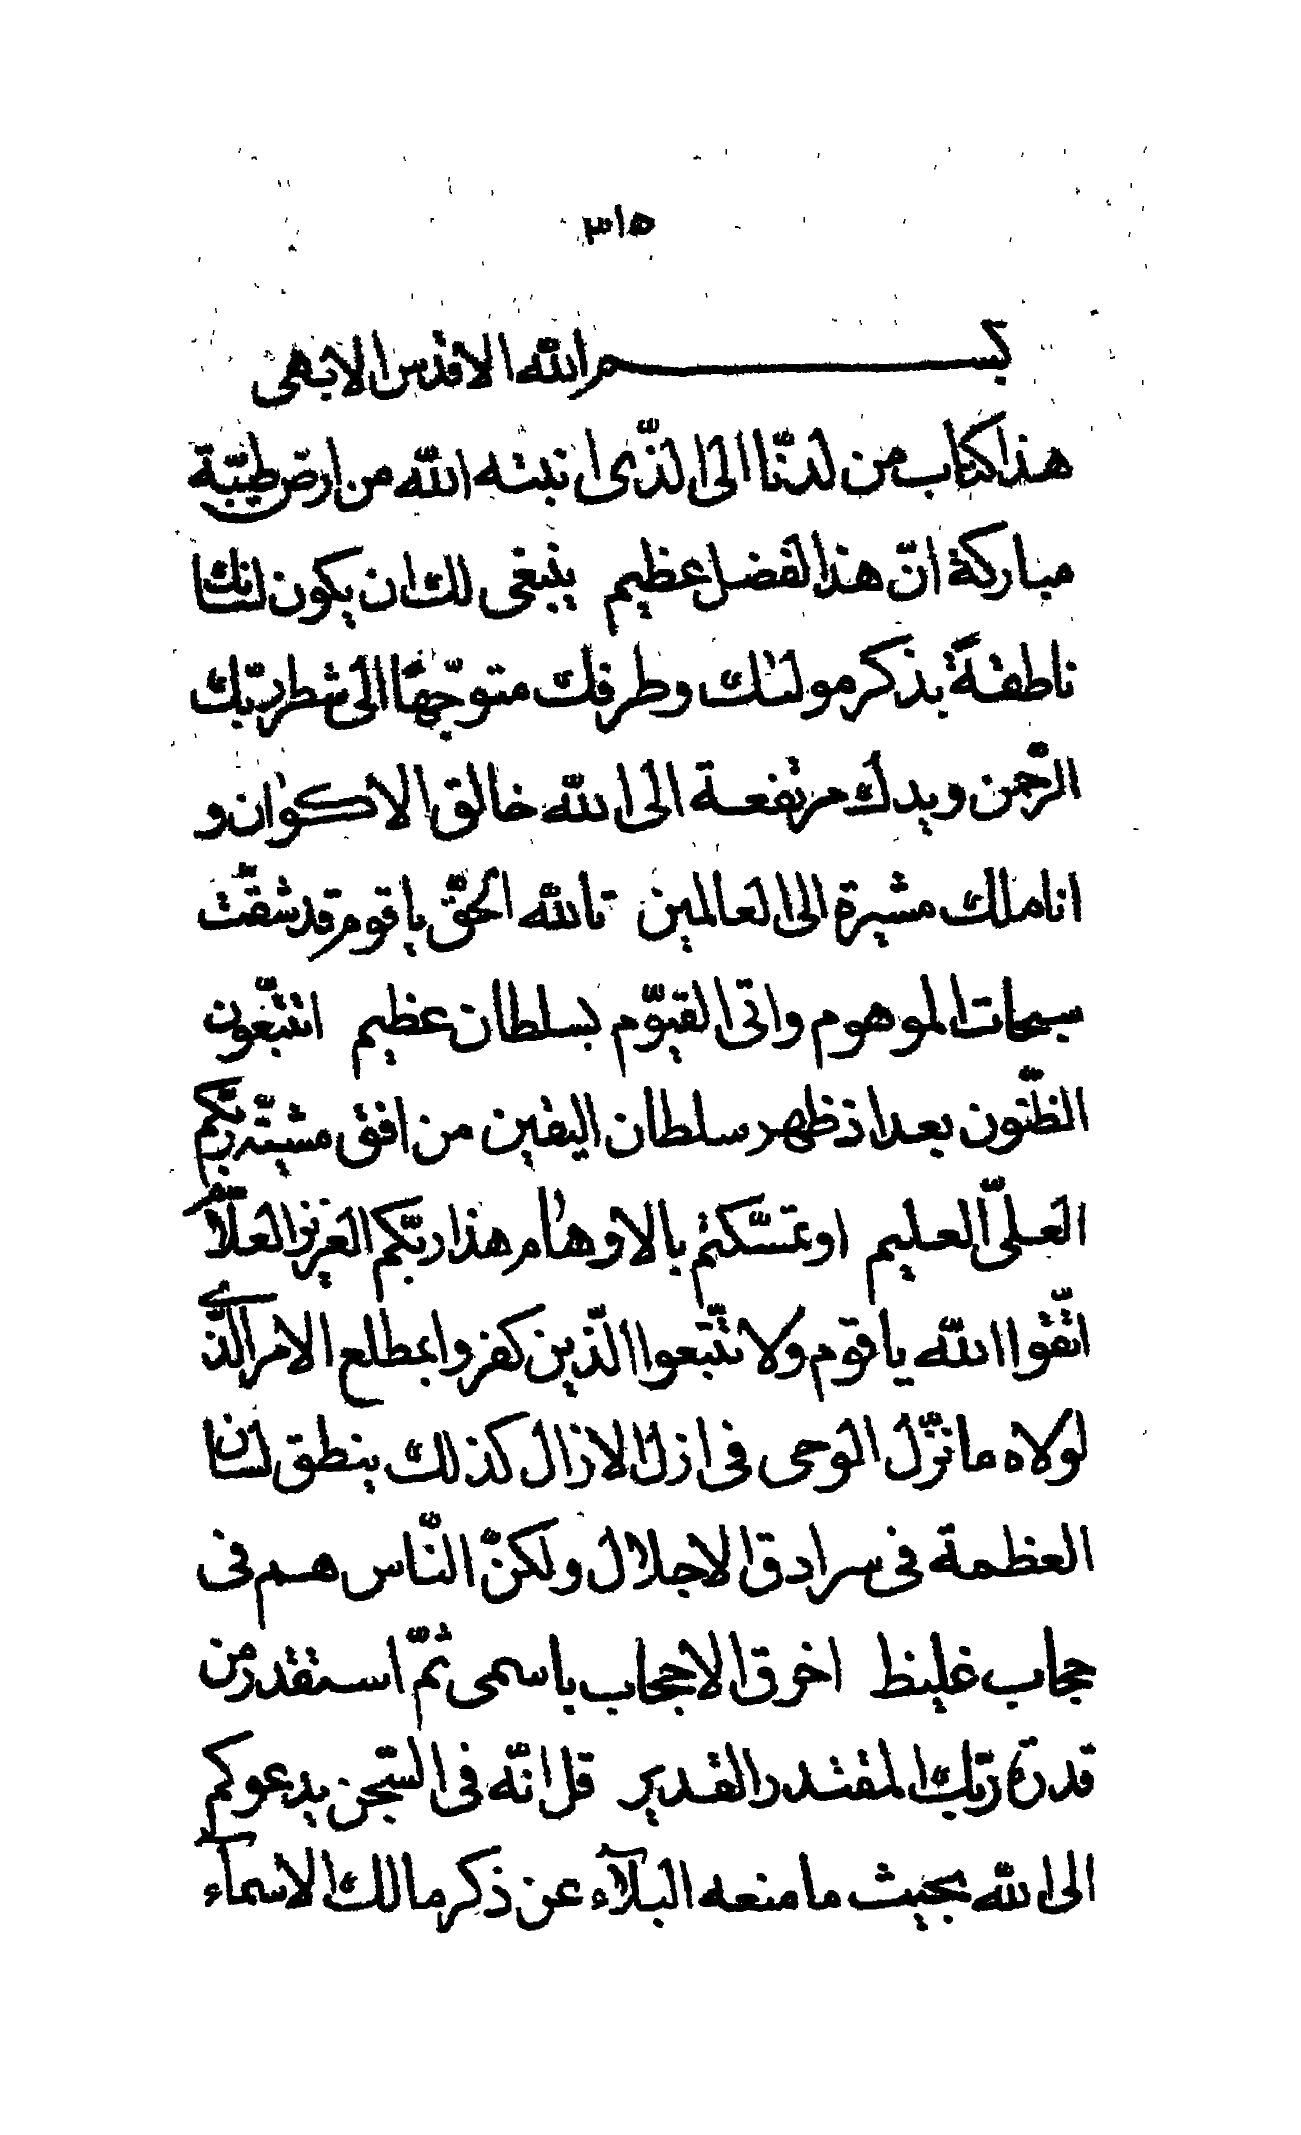 ٣١٥
بسم الله الاقدس الابهى
هذا كتاب من لدنّا الى الذّى انبته الله من ارض طيّبة
مباركة انّ هذا لفضل عظيم ينبغى لك ان يكون لسانك
ناطقةً بذكر موليٰك وطرفك متوجّهًا الى شطر ربّك
الرّحمن ويدك مرتفعة الى الله خالق الاكوٰان و
اناملك مشيرة الى العالمين تالله الحقّ ياقوم قد شقّت
سبحات الموهوم واتى القيّوم بسلطان عظيم اتتّبعون
الظّنون بعد اذ ظهر سلطان اليقين من افق مشيّة ربّكم
العلىّ العليم او تمسّكتم بالاوهٰام هذا ربّكم العزيز العلّام
اتّقوا الله ياقوم ولا تتّبعوا الّذين كفروا بمطلع الامر الّذى
لولاه ما نزّل الوحى فى ازل الازال كذلك ينطق لسان
العظمة فى سرادق الاجلال ولكنّ النّاس هم فى
حجاب غليظ اخرق الاحجاب باسمى ثمّ استقدر من
قدرة ربّك المقتدر القدير قل انّه فى السّجن يدعوكم
الى الله بحيث ما منعه البلآء عن ذكر مالك الاسمآء